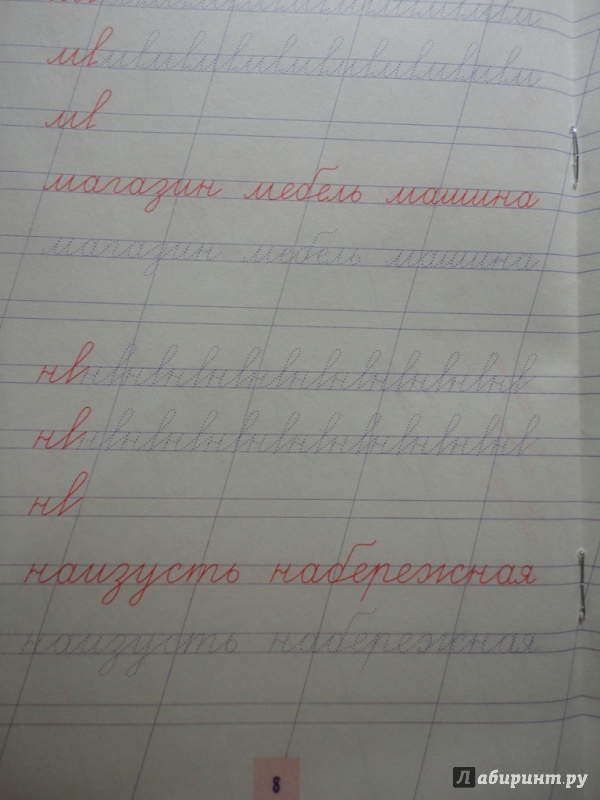 мв
мв
магазин мебель машина
магазин мебель машина
нв
нв
нв
наизусть набережная
наизусть набережная
8
Лабиринт.ру